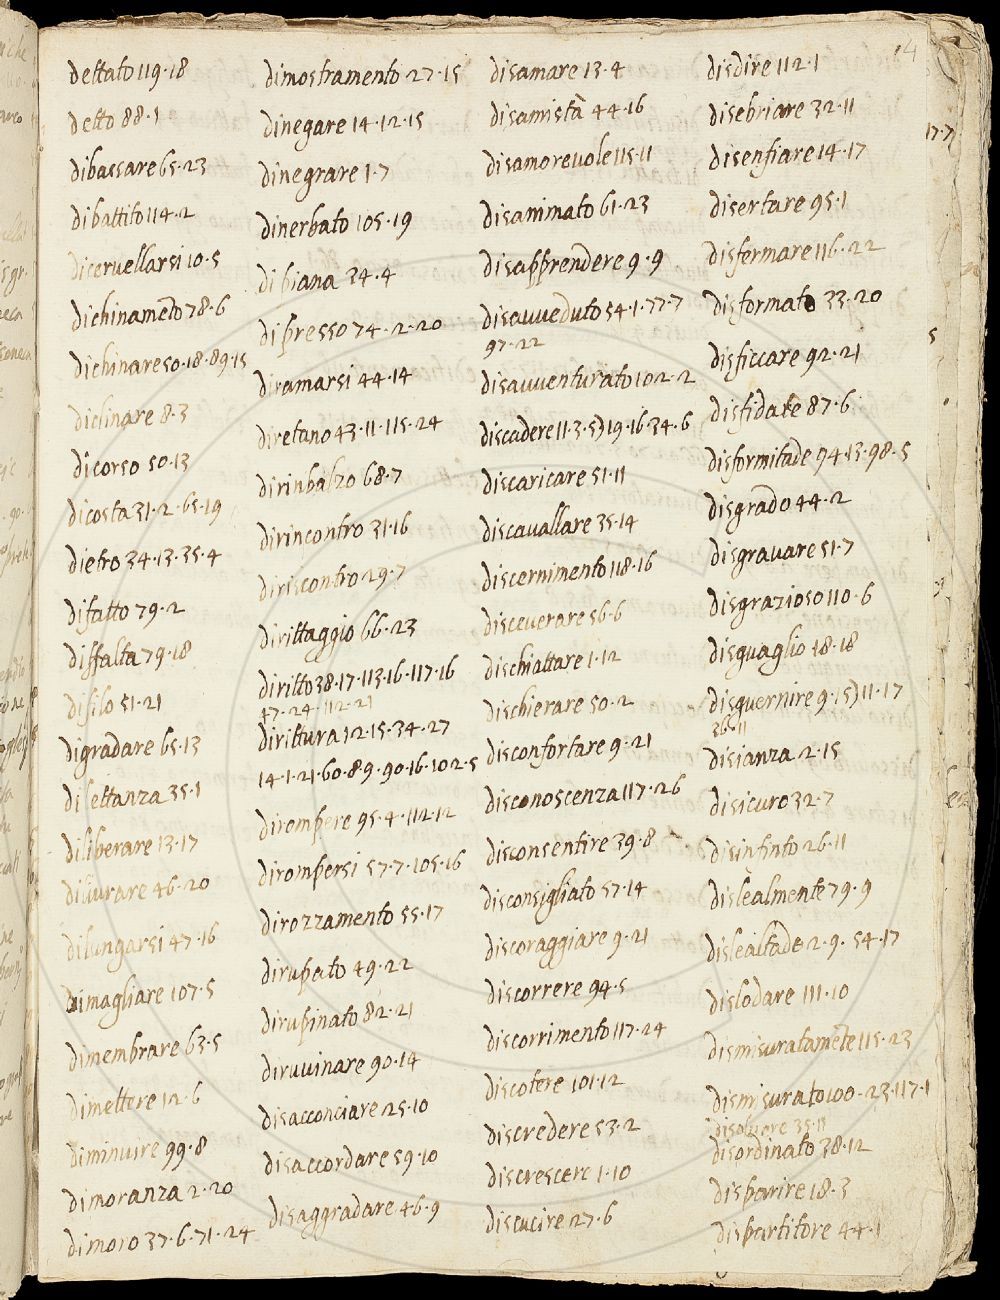 4
dettato 119·18
detto 88·1
dibassare 65·23
dibattito 114·2
diceruellarsi 10·5
dichinamẽto 78·6
dichinare 50·18·89·15
diclinare 8·3
dicorso 50·13
dicosta 31·2·65·19
dietro 34·13·35·4
difatto 79·2
diffalta 79·18
difilo 51·21
digradare 65·13
dilettanza 35·1
diliberare 13·17
dilungarsi 47·16
dimagliare 107·5
dimembrare 63·5
dimettere 12·6
diminuire 99·8
dimoranza 2·20
dimoro 37·6·71·24
dimostramento 27·15
dinegare 14·12·15
dinegrare 1·7
dinerbato 105·19
di piana 34·4
dipresso 74·2·20
diramarsi 44·14
diretano 43·11·115·24
dirinbalzo 68·7
dirincontro 31·16
diriscontro 29·7
dirittaggio 66·23
diritto 38·17·113·16·117·16
47·24·112·21
dirittura 12·15·34·27
14·1·21·60·8·9·90·16·102·5
dirompere 95·4·112·12
dirompersi 57·7·105·16
dirozzamento 55·17
dirupato 49·22
dirupinato 82·21
diruuinare 90·14
disacconciare 25·10
disaccordare 59·10
disaggradare 46·9
disamare 13·4
disamistà 44·16
disamoreuole 115·11
disanimato 61·23
disapprendere 9·9
disauueduto 54·1·77·7
97·22
disauuenturato 102·2
discadere 11·3·5) 19·16·34·6
discaricare 51·11
discauallare 35·14
discernimento 118·16
disceuerare 56·6
dischiattare 1·12
dischierare 50·2
disconfortare 9·21
disconoscenza 117·26
disconsentire 39·8
disconsigliato 57·14
discoraggiare 9·21
discorrere 94·5
discorrimento 117·24
discotere 101·12
discredere 53·2
discrescere 1·10
discucire 27·6
disdire 112·1
disebriare 32·11
disenfiare 14·17
disertare 95·1
disfermare 116·22
disformato 33·20
disficcare 92·21
disfidate 87·6
disformitade 94·13·98·5
disgrado 44·2
disgrauare 51·7
disgrazioso 110·6
disguaglio 48·18
disguernire 9·15) 11·17
36·11
disianza 2·15
disicuro 32·7
disinfinto 26·11
dislealmente 79·9
dislealtade 2·9·54·17
dislodare 111·10
dismisuratamẽte 115·23
dismisurato 100·23·117·1
disoluere 35·11
disordinato 38·12
disparire 18·3
dispartitore 44·1